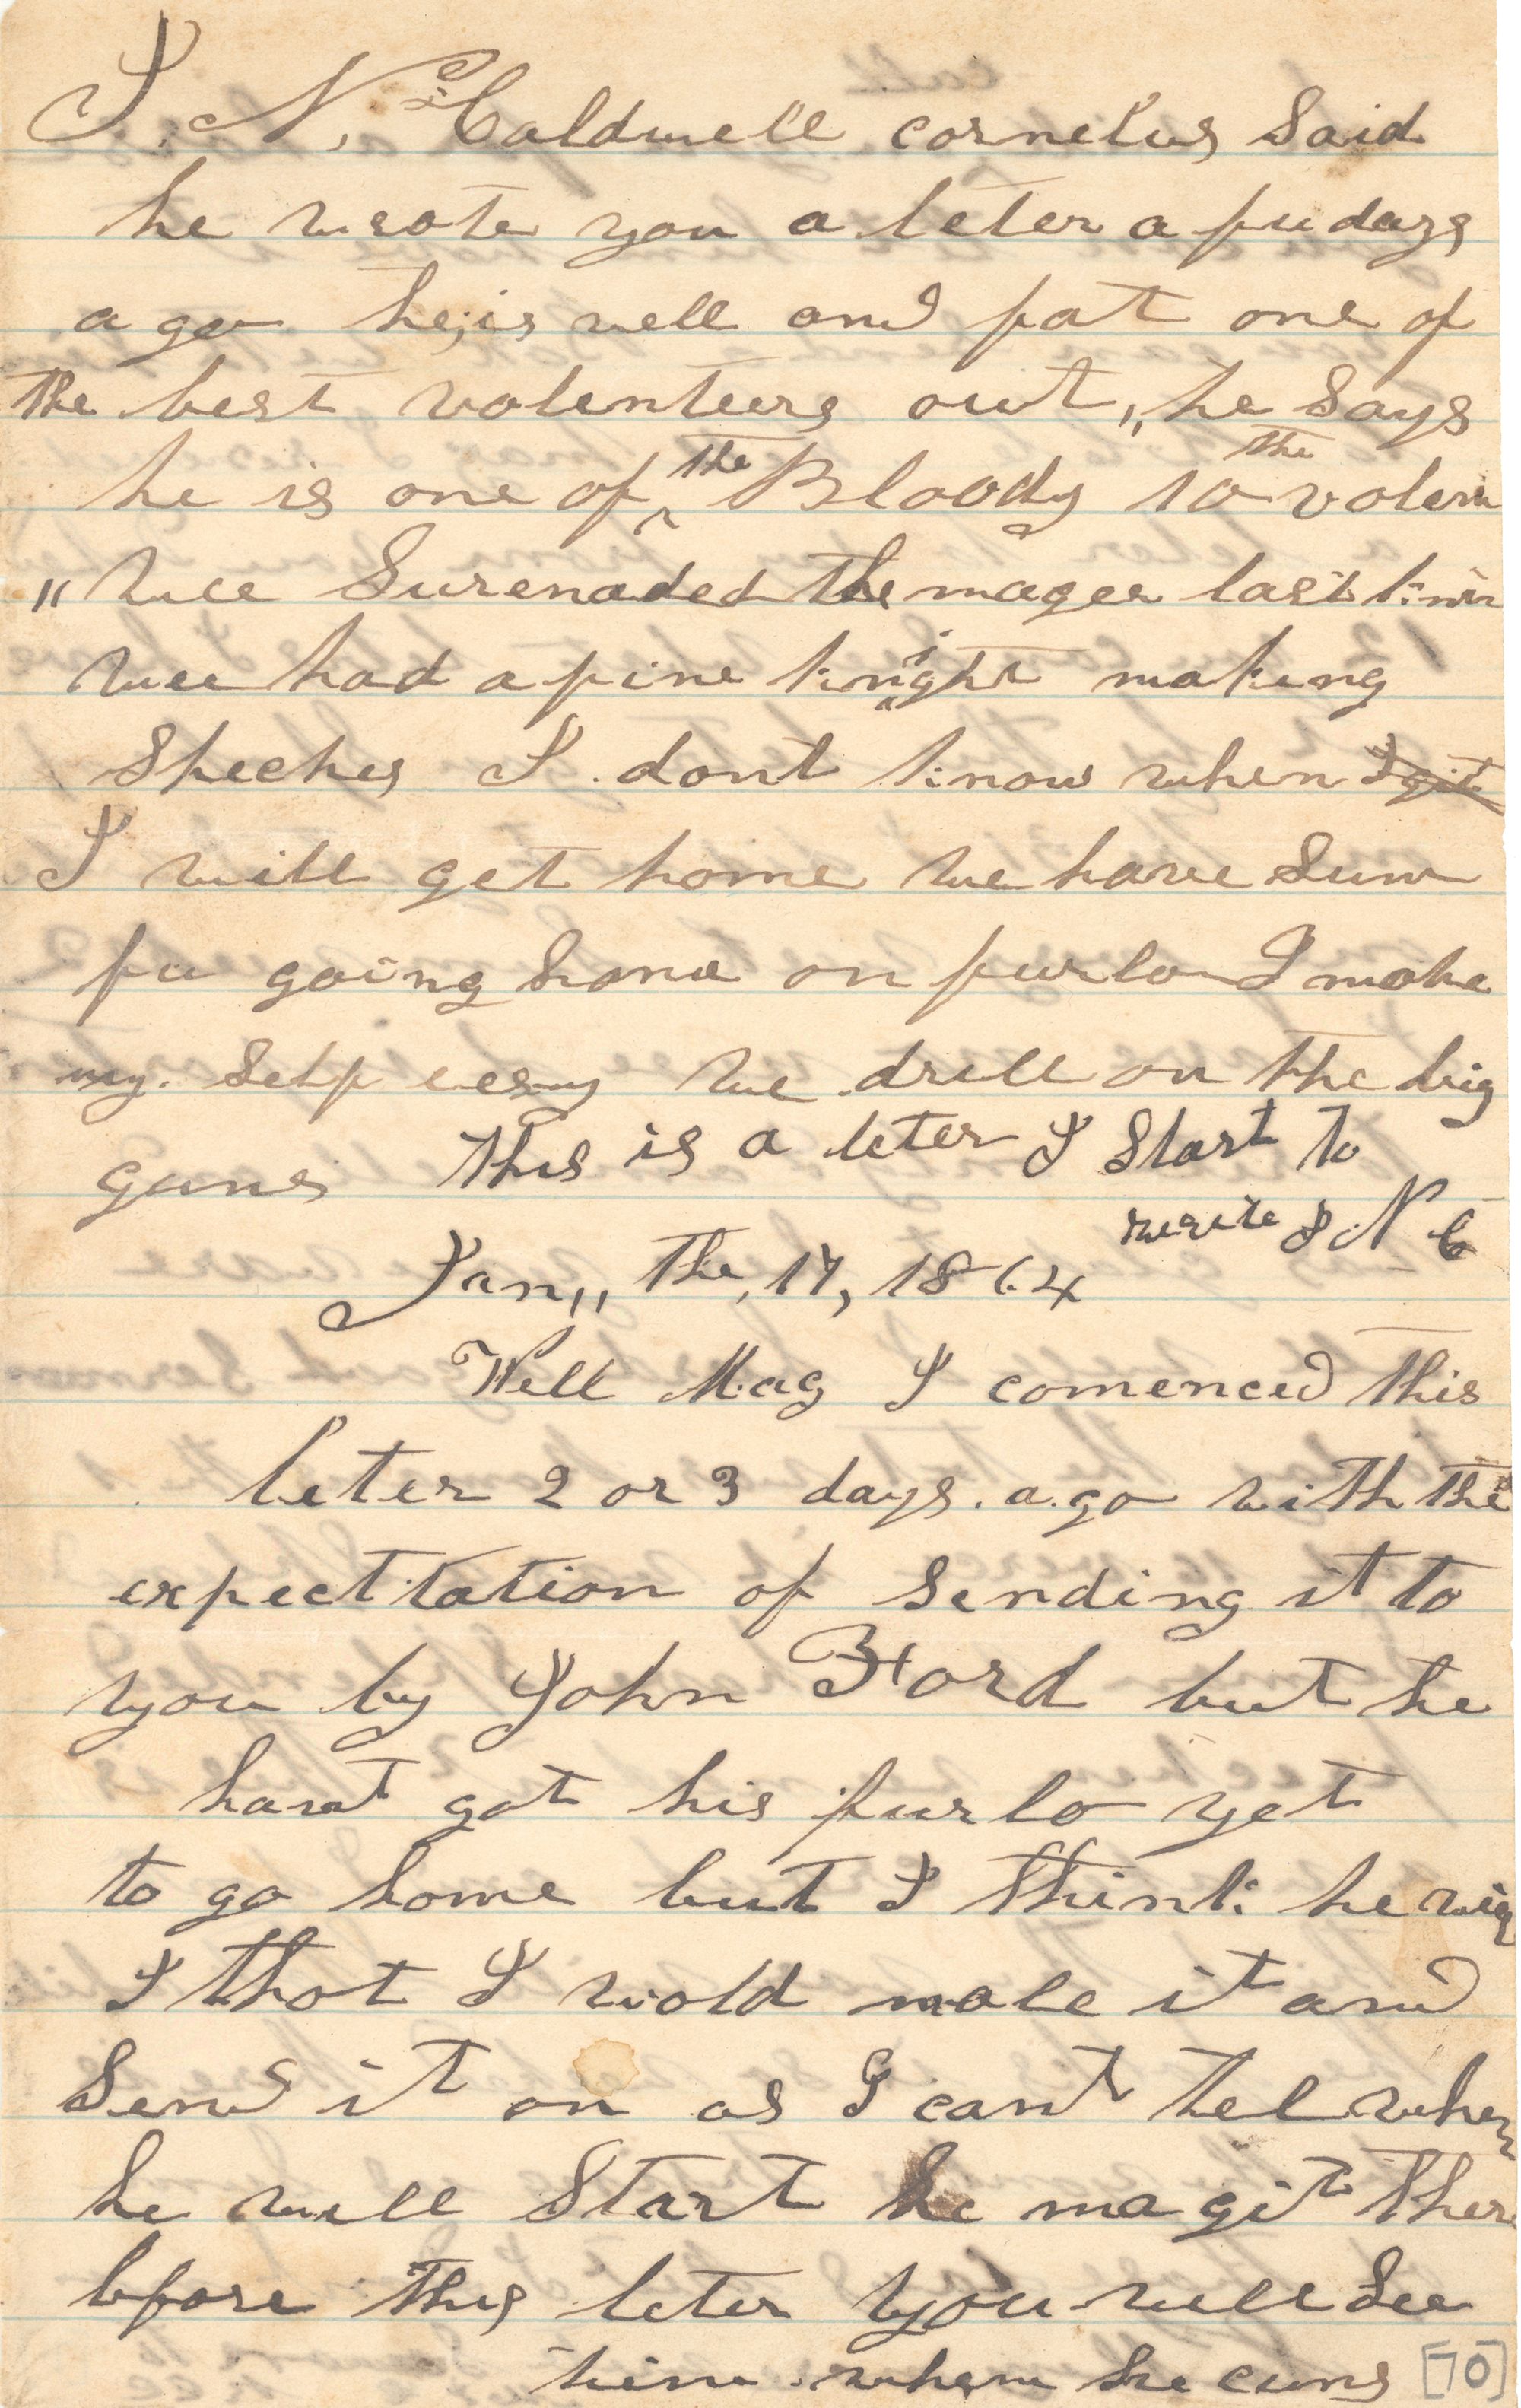 J. N. Caldwell cornelus Said
he wrote you a leter a fu days
a go he is well and fat one of
the best volenteers out ,, he Says
he is one of the Bloody 10 the volen
,, wee Surenaded the mager last knight
wee had a fine knight making
Speches I dont know when I git
I will get home we have Sum
fu going home on furlo I make
my Self eesy we drill on the big
guns this is a leter I Start to
write J N C
Jan,, the, 17, 1864
Well Mag I comenced this
leter 2 or 3 days a go with the
expecttation of Sending it to
you by John Ford but he
hant got his furlo yet
to go home but I think he will
I thot I wold male it and
Send it on as I cant tel when
he will Start he ma git there
bfore this leter you will See
him when he cums [70]